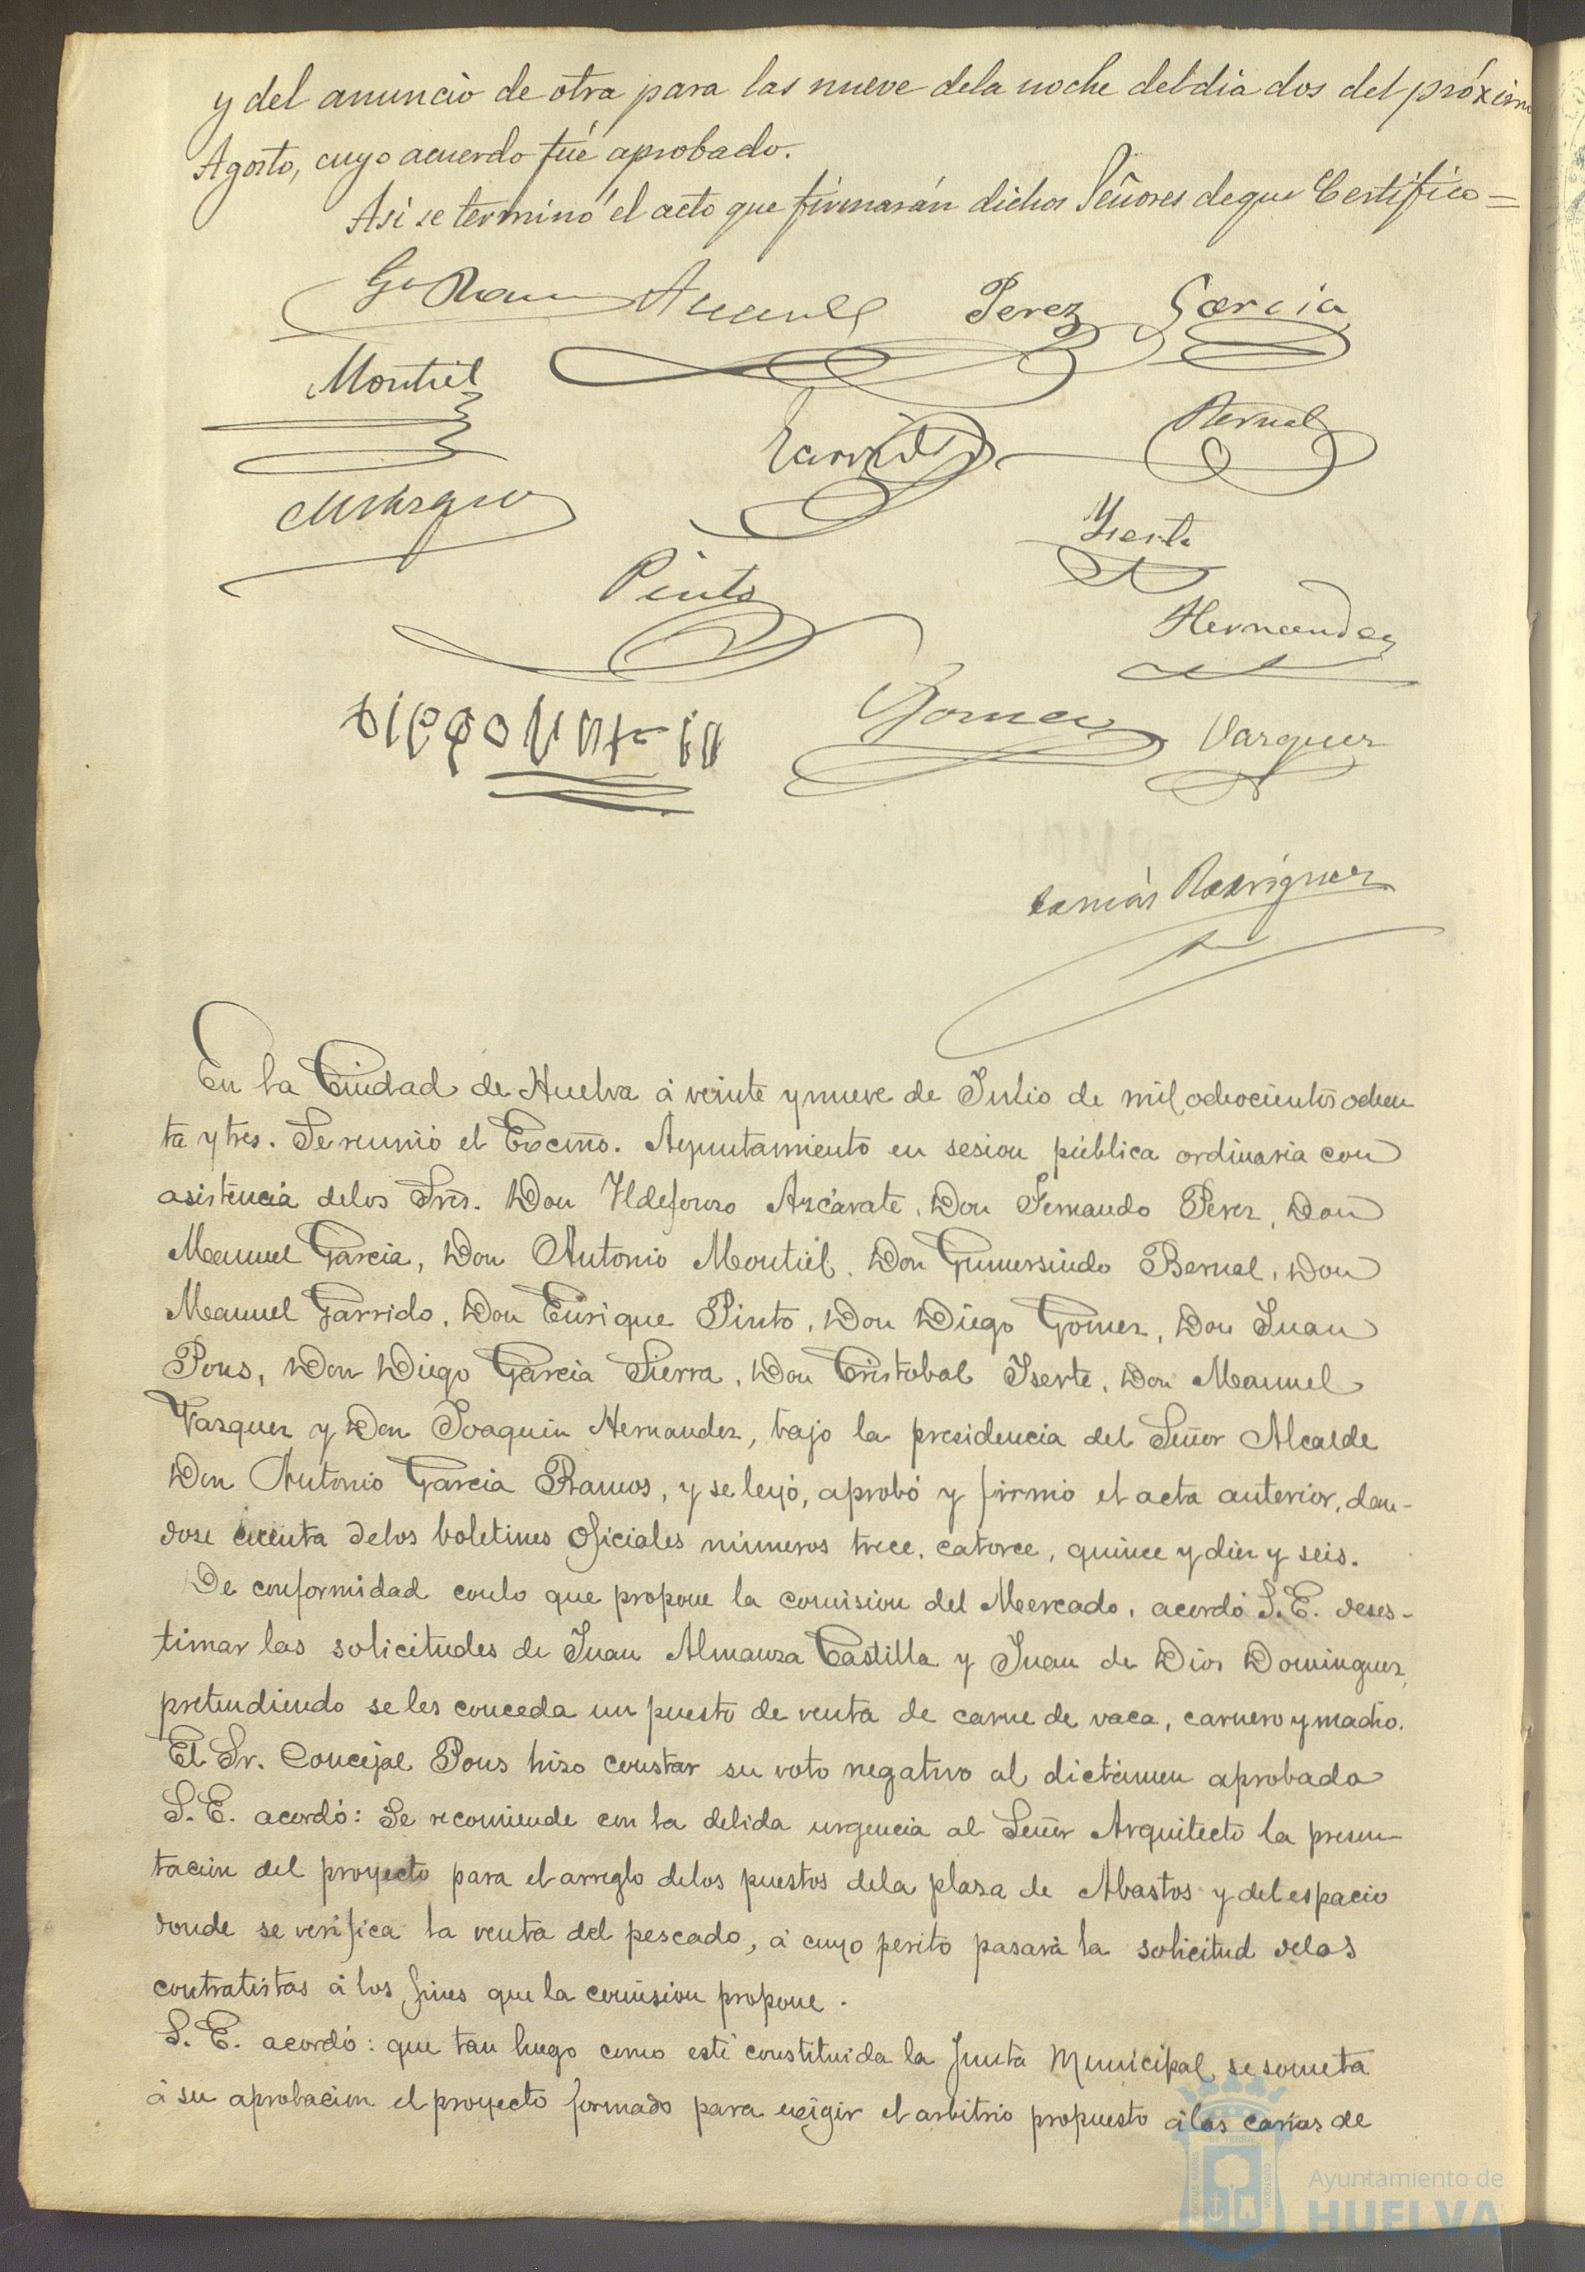 y del anuncio de otra para las nueve dela noche del dia dos del próximo
Agosto, cuyo acuerdo fué aprobado.
Asi se terminó el acto que firmarán dichos Señores de que Certifico =
Ga Ramos Azcarate Perez Garcia
Montiel
Garrido Bernal
Yserte
Pinto
Hernandez
Gomez Vazquez
Tomás Rodriguez
En la Ciudad de Huelva á veinte y nueve de Julio de mil ochocientos ochen
ta y tres. Se reunió el Excmo. Ayuntamiento en sesion pública ordinaria con
asistencia delos Sres. Don Yldefonso Azcárate, Don Fernando Perez, Don
Manuel Garcia, Don Antonio Montiel, Don Gumersindo Bernal, Don
Manuel Garrido, Don Enrique Pinto, Don Diego Gomez, Don Juan
Pons, Don Diego Garcia Sierra, Don Cristobal Yserte, Don Manuel
Vazquez y Don Joaquin Hernandez, bajo la presidencia del Señor Alcalde
Don Antonio Garcia Ramos, y se leyó, aprobó y firmó el acta anterior, dan-
dose cuenta delos boletines Oficiales números trece, catorce, quince y diez y seis.
De conformidad conlo que propone la comision del Mercado, acordó S.E. deses-
timar las solicitudes de Juan Almanza Castilla y Juan de Dios Dominguez,
pretendiendo se les conceda un puesto de venta de carne de vaca, carnero y macho.
El Sr. Concejal Pons hizo constar su voto negativo al dictámen aprobado
S. E. acordó: Se recomiende con la debida urgencia al Señor Arquitecto la presen-
tacion del proyecto para el arreglo delos puestos dela plaza de Abastos y del espacio
donde se verifica la venta del pescado, á cuyo perito pasará la solicitud delos
contratistas á los fines que la comision propone.
S. E. acordó: que tan luego como esté constituida la Junta Municipal, se someta
á su aprobacion el proyecto formado para exigir el arbitrio propuesto á las carnes de
Ayuntamiento de
HUELVA